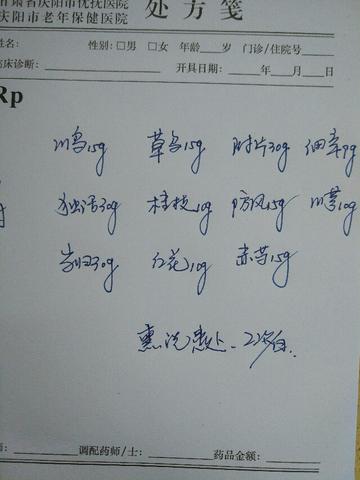 甘肃省庆阳市优抚医院
庆阳市老年保健医院
处方笺
姓名: 性别:□男 □女 年龄___岁 门诊/住院号
临床诊断: 开具日期:___年___月___日
Rp
川乌15g 草乌15g 附片30g 细辛9g
独活30g 桂枝10g 防风15g 川芎10g
当归30g 红花10g 赤芍15g
熏洗患处、2次/日.
师: 调配药师/士: 药品金额: